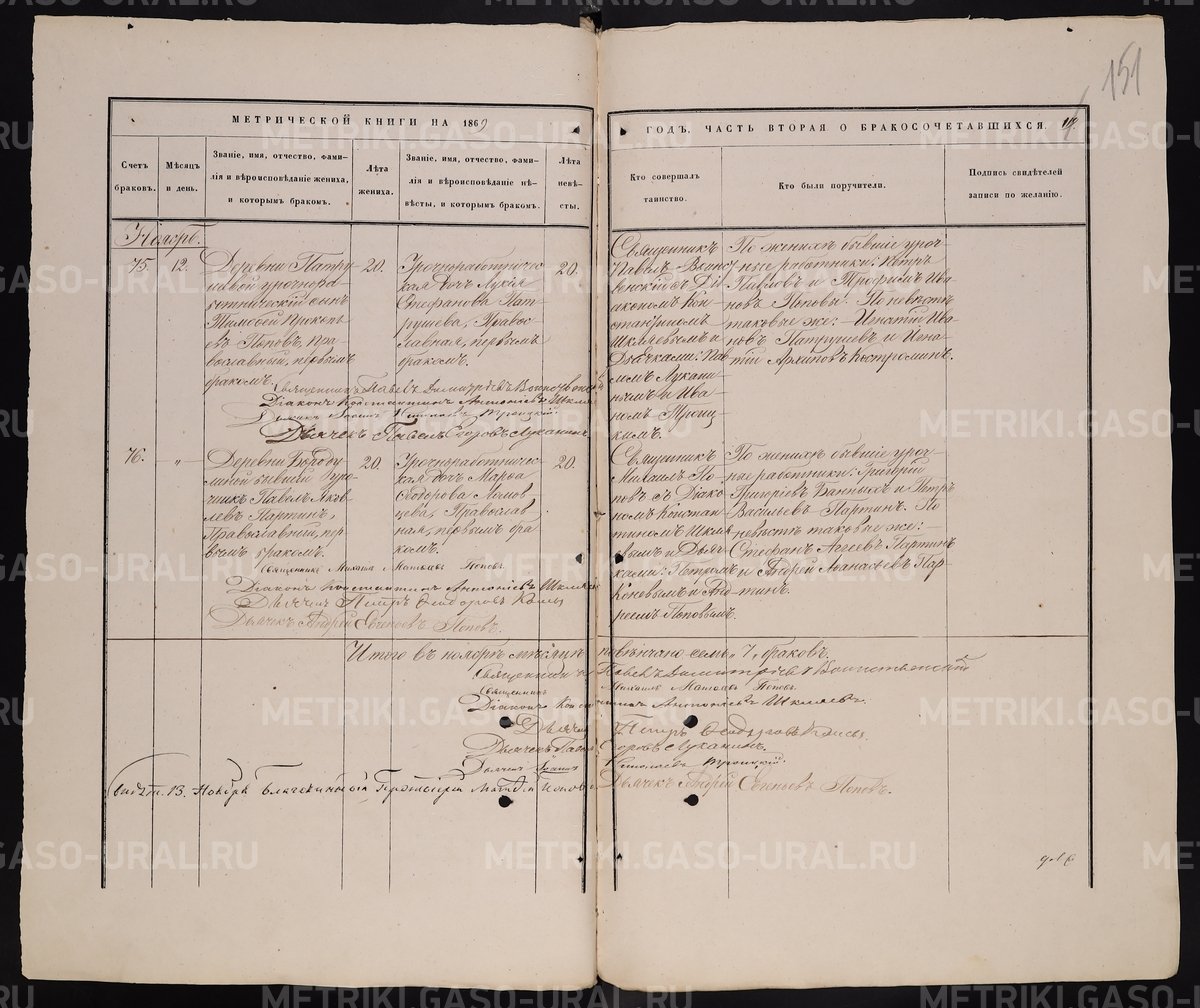 151
МЕТРИЧЕСКОЙ КНИГИ НА 1869
ГОДЪ, ЧАСТЬ ВТОРАЯ О БРАКОСОЧЕТАВШИХСЯ.
Счетъ
браковъ.
Мѣсяцъ
и день.
Званіе, имя, отчество, фами-
лія и вѣроисповѣданіе жениха,
и которымъ бракомъ.
Лѣта
жениха.
Званіе, имя, отчество, фами-
лія и вѣроисповѣданіе не-
вѣсты, и которымъ бракомъ.
Лѣта
невѣ-
сты.
Кто совершалъ
таинство.
Кто были поручители.
Подпись свидѣтелей
записи по желанію.
Ноябрь.
75.
12.
Деревни Патру-
шевой урочнора-
ботническій сынъ
Тимофей Прокопь-
евъ Поповъ, Пра-
вославный, первымъ
бракомъ.
20.
Урочноработничес-
кая дочь
Стефанова Пат-
рушева, Правос-
лавная, первымъ
бракомъ.
20.
Священникъ
Павелъ Воинс-
венскій съ Ді-
акономъ Кон-
стантиномъ
Шкляевымъ и
Дьячками: Па-
вломъ Лукани-
нымъ и Ива-
номъ Троиц-
кимъ.
По женихѣ бывшіе уроч-
ные работники: Петръ
Павловъ и Трофимъ Ива-
новъ Поповы. По невѣстѣ
таковые же: Игнатій Ива-
новъ Патрушевъ и Игна-
тій Архиповъ Костроминъ.
Священникъ Павелъ Димитріевъ
Діаконъ Константинъ Антоніевъ Шкляевъ
Дьячекъ Іоаннъ Николаевъ Троицкій.
Дьячекъ Павелъ Егоровъ Луканинъ.
76.
"
Деревни Бороду-
линой бывшій Уро-
чникъ Павелъ Яков-
левъ Партинъ,
Православный, пер-
вымъ бракомъ.
20.
Урочноработничес-
кая дочь Марѳа
Ѳеодорова Ломов-
цева, Православ-
ная, первымъ бра-
комъ.
20.
Священникъ
Михаилъ По-
повъ съ Діако-
номъ Констан-
тиномъ Шкля-
евымъ и Дьяч-
ками: Петромъ
и Анд-
реемъ Поповымъ.
По женихѣ бывшіе уроч-
ные работники: Григорій
Григоріевъ Банныхъ и Петръ
Васильевъ Партинъ. По
невѣстѣ таковые же:
Стефанъ Агеевъ Партинъ
и Андрей Аѳанасьевъ Пар-
тинъ.
Священникъ Михаилъ Матѳіевъ Поповъ.
Діаконъ Константинъ Антоніевъ Шкляевъ
Дьячекъ Петръ Ѳеодоровъ
Дьячекъ Андрей Евгеньевъ Поповъ.
Итого въ ноябрѣ мѣсяцѣ повѣнчано семь "7" браковъ.
Священникъ Павелъ Димитріевъ
Священникъ Михаилъ Матѳіевъ Поповъ.
Діаконъ Константинъ Антоніевъ Шкляевъ.
Дьячекъ Петръ Ѳеодоровъ
Дьячекъ Павелъ Егоровъ Луканинъ.
Дьячекъ Іоаннъ Николаевъ Троицкій.
Дьячекъ Андрей Евгеньевъ Поповъ.
13. Ноября Благочинный Протоіерей Поповъ
METRIKI.GASO-URAL.RU